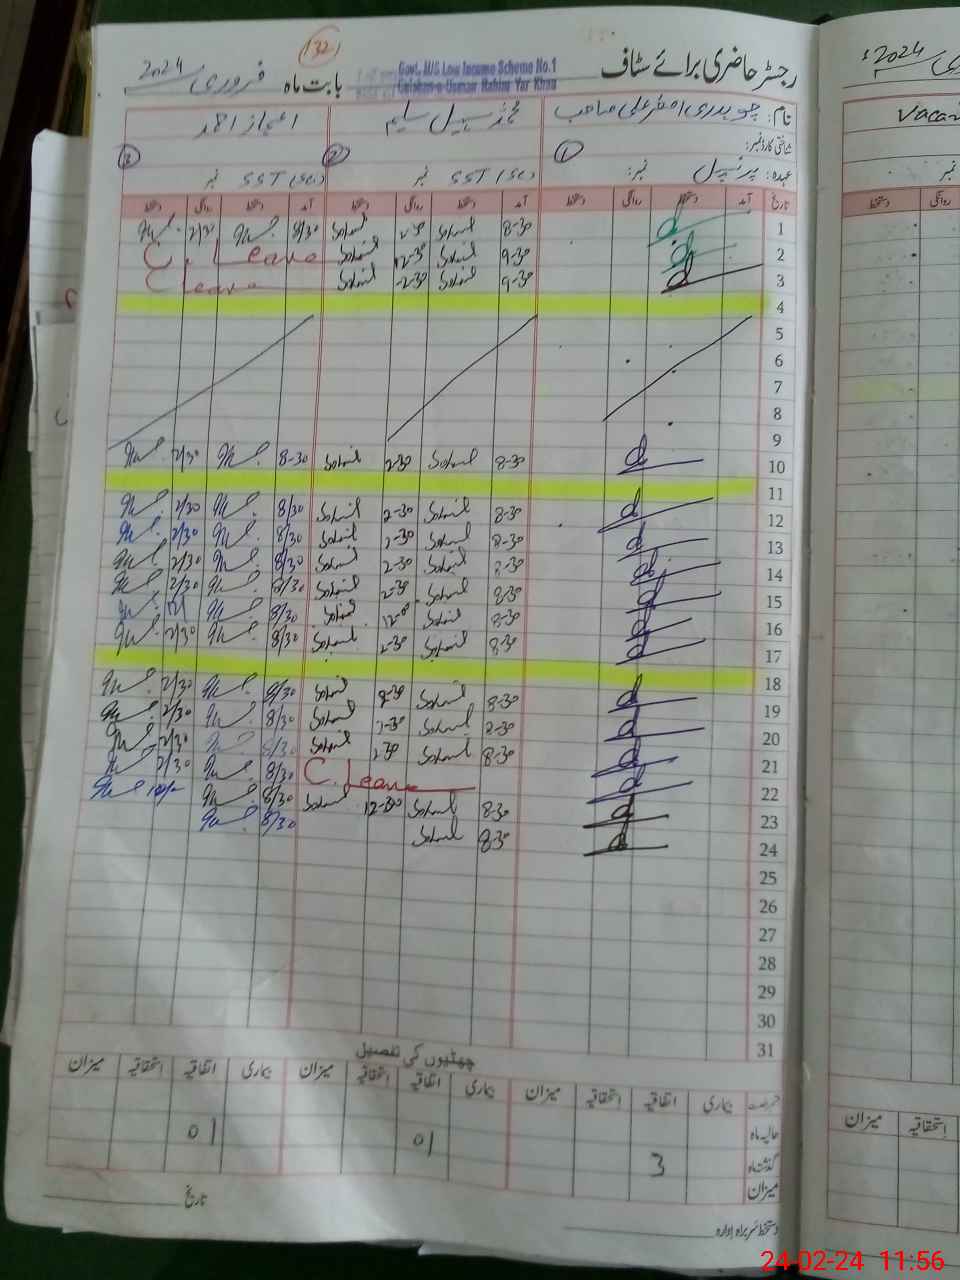 1321
رجسٹر حاضری برائے سٹاف
Govt. M/S Low Income Scheme No.1
Gulshan-e-Usman Rahim Yar Khan
بابت ماہ فروری 2024
نام: چوہدری اصغر علی صاحب محمد سہیل سلیم اعجاز احمد
شناختی کارڈ نمبر: 1 2 3
عہدہ: پرنسپل نمبر: SST (Sc) نمبر SST (Sc) نمبر
تاریخ آمد دستخط روانگی دستخط آمد دستخط روانگی دستخط آمد دستخط روانگی دستخط
1 8-30 Sohail 2-30 Sohail 8/30 2/30
2 9-30 Sohail 12-30 Sohail C. Leave
3 9-30 Sohail 2-30 Sohail C Leave
4
5
6
7
8
9
10 8-30 Sohail 2-30 Sohail 8-30 2/30
11
12 8-30 Sohail 2-30 Sohail 8/30 2/30
13 8-30 Sohail 2-30 Sohail 8/30 2/30
14 8-30 Sohail 2-30 Sohail 8/30 2/30
15 8-30 Sohail 2-30 Sohail 8/30 2/30
16 8-30 Sohail Sohail 8/30
17 8-30 Sohail 2-30 Sohail 8/30 2/30
18
19 8-30 Sohail 2-30 Sohail 8/30 2/30
20 8-30 Sohail 2-30 Sohail 8/30 2/30
21 8-30 Sohail 2-30 Sohail 8/30 2/30
22 C. Leave 8/30 2/30
23 8-30 Sohail 12-30 Sohail 8/30
24 8-30 Sohail 8/30
25
26
27
28
29
30
31
چھٹیوں کی تفصیل
رخصت بیماری اتفاقیہ استحقاقیہ میزان بیماری اتفاقیہ استحقاقیہ میزان بیماری اتفاقیہ استحقاقیہ میزان
حالیہ ماہ 01 01
گذشتہ ماہ 3
میزان
دستخط سربراہ ادارہ تاریخ
2024
Vacan
نمبر
روانگی دستخط
استحقاقیہ میزان
24-02-24 11:56